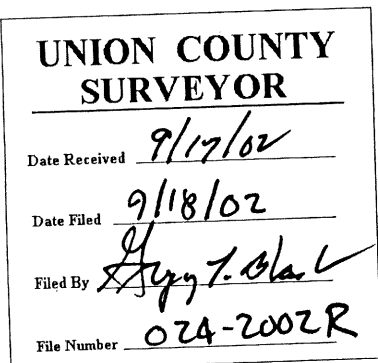 UNION COUNTY
SURVEYOR
Date Received 9/17/02
Date Filed 9/18/02
Filed By T.
File Number 024-2002R